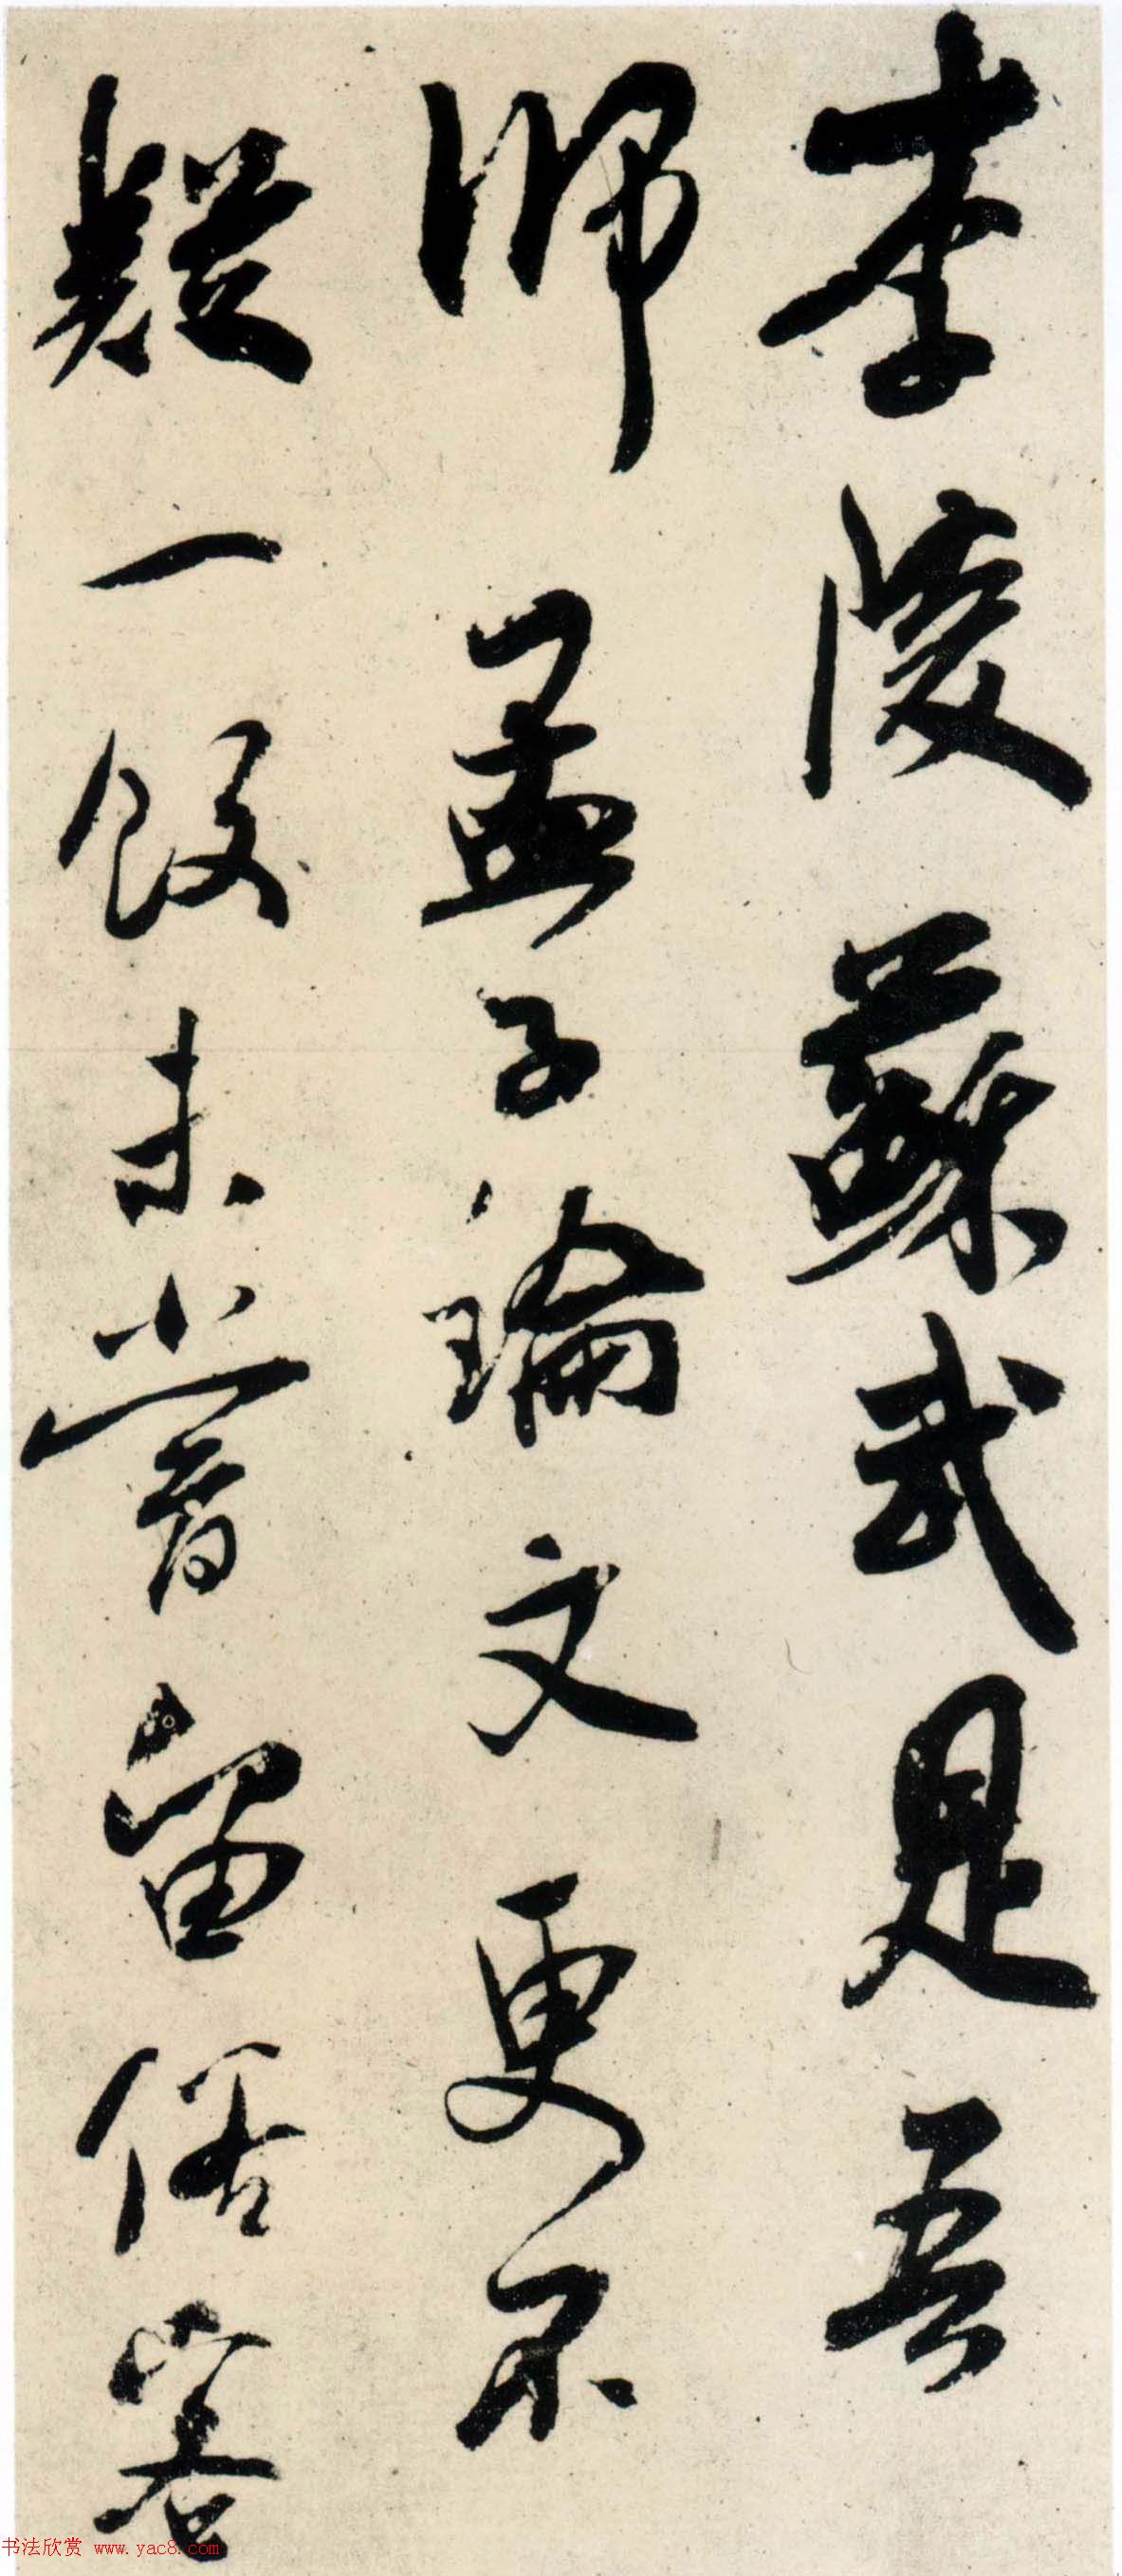 李陵蘇武是吾
師孟子論文更不
疑一飯未嘗留俗客
书法欣赏 www.yac8.com